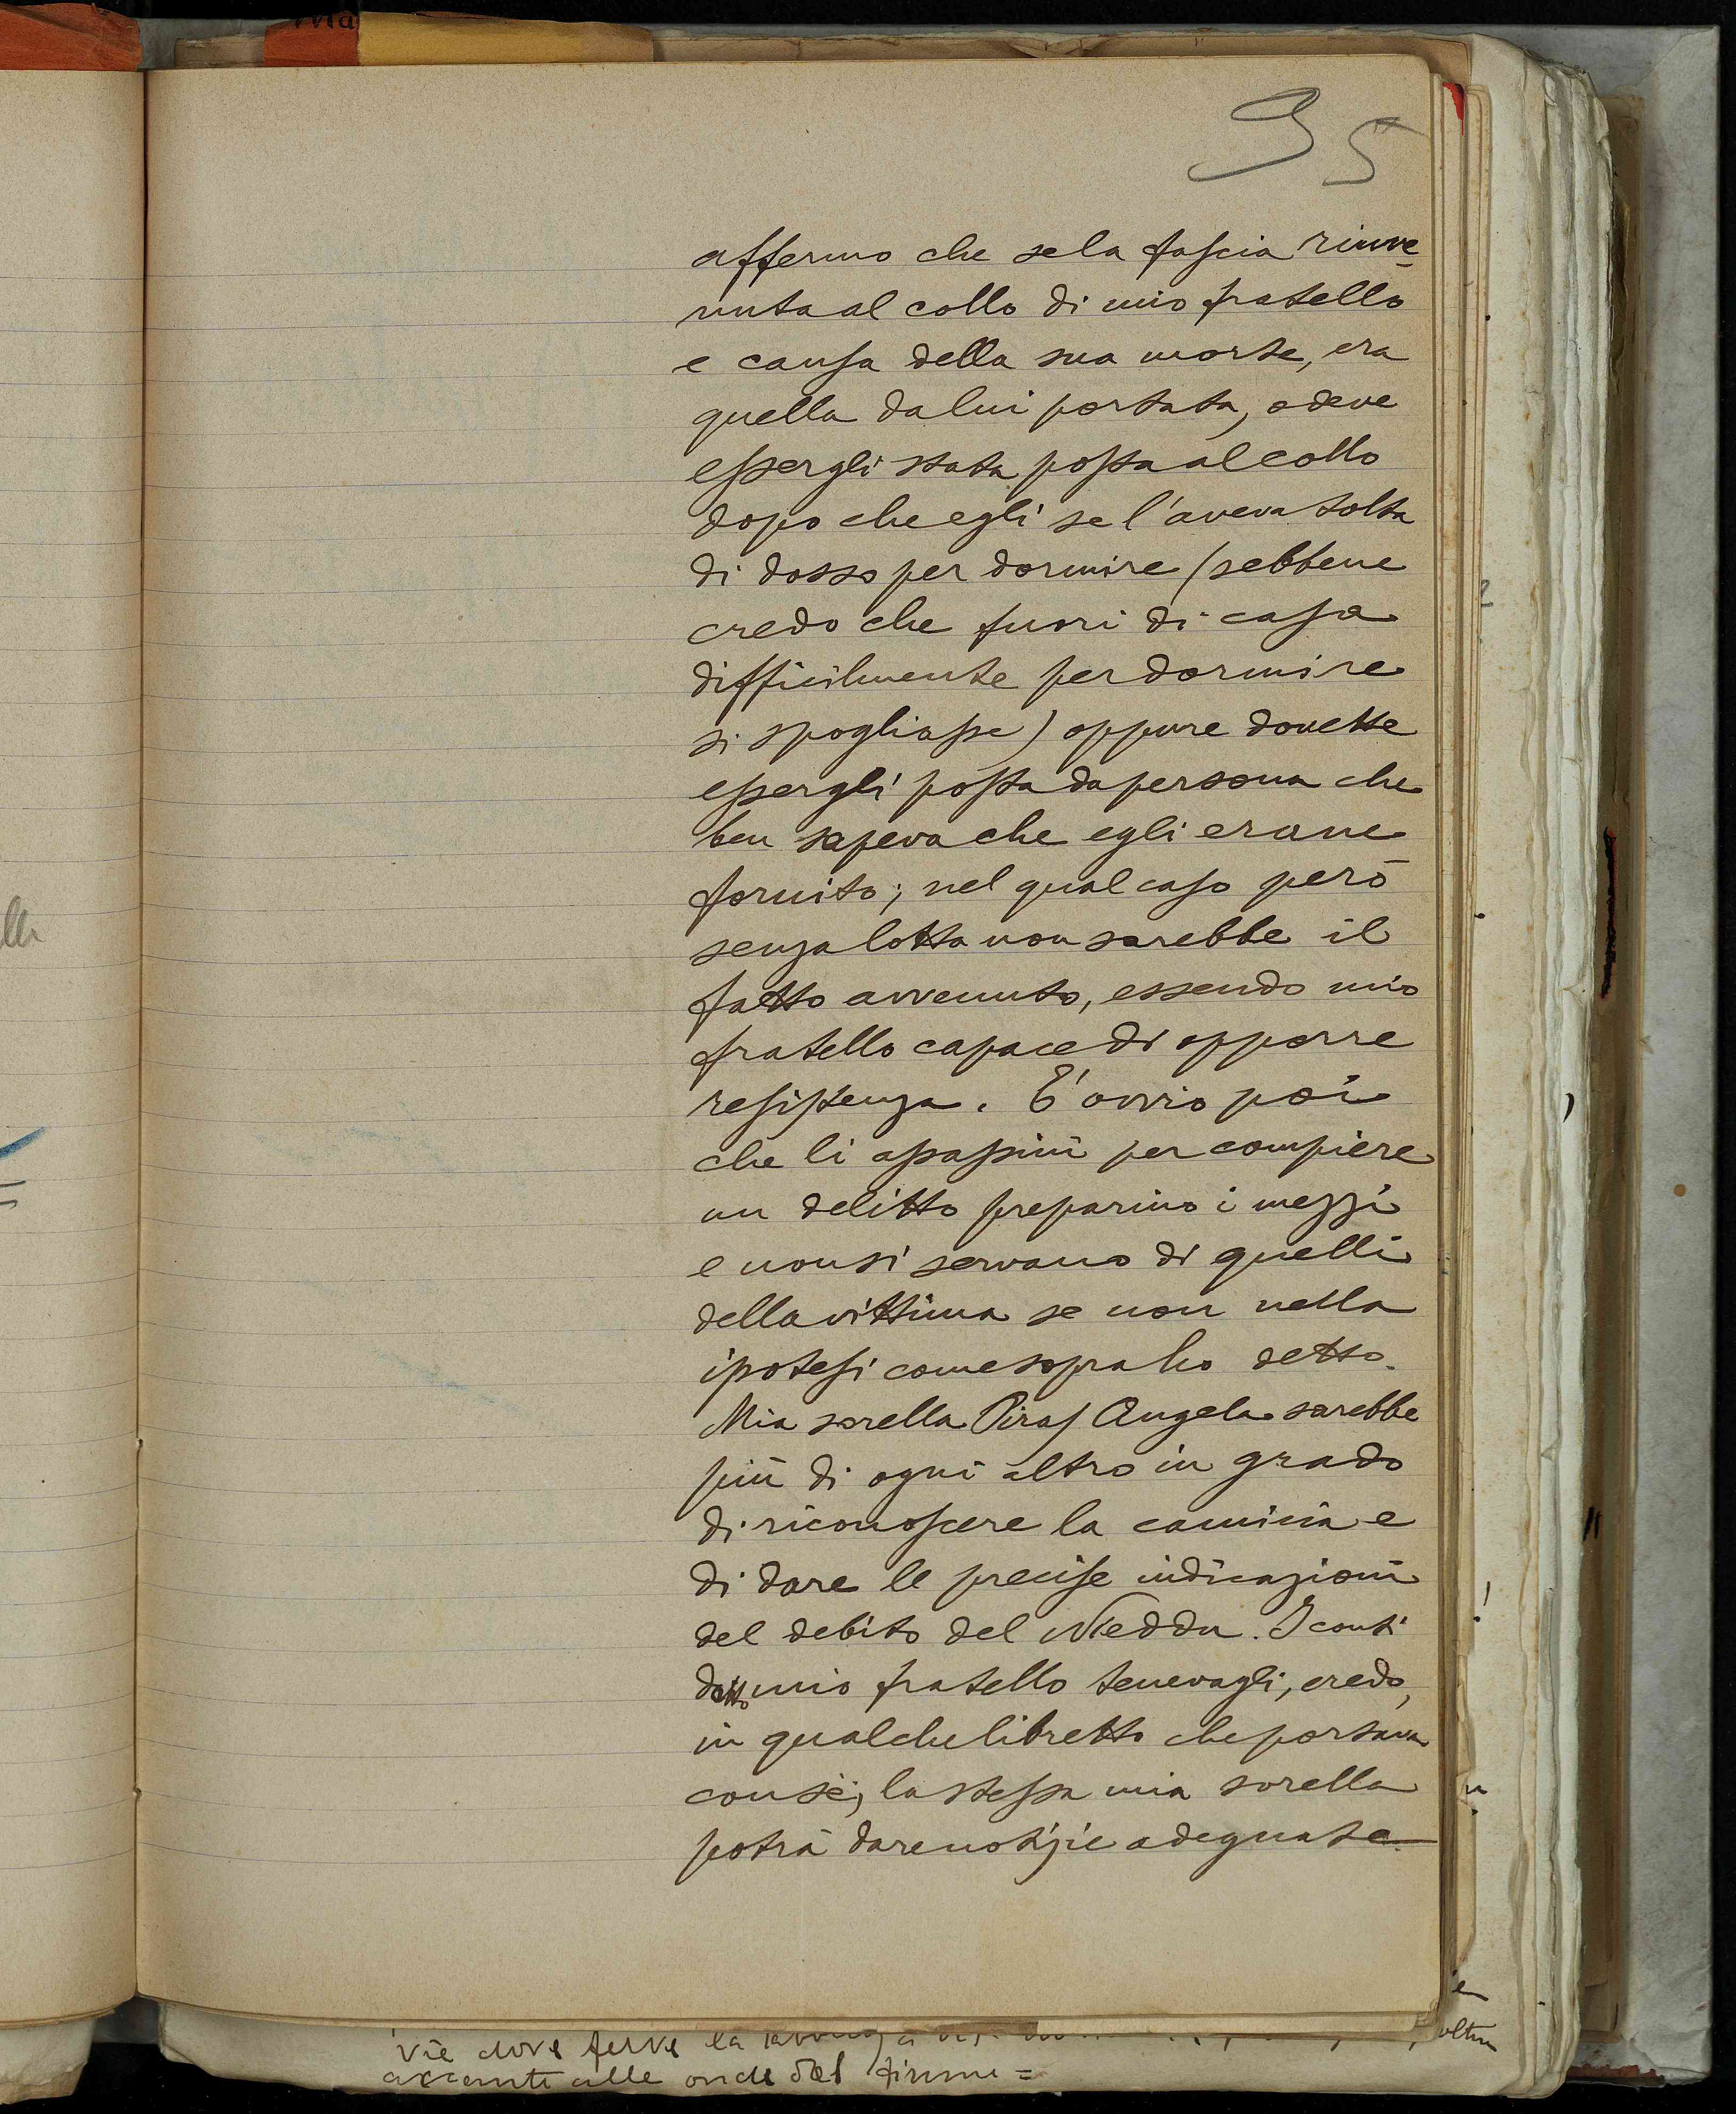 95
affermo che se la fascia rinve-
nuta al collo di mio fratello
e causa della sua morte, era
quella da lui portata, o deve
essergli stata posta al collo
dopo che egli se l'aveva tolta
di dosso per dormire (sebbene
credo che fuori di casa
difficilmente per dormire
si spogliasse) oppure dovette
essergli posta da persona che
ben sapeva che egli era ne
fornito; nel qual caso però
senza lotta non sarebbe il
fatto avvenuto, essendo mio
fratello capace di opporre
resistenza. E' ovvio poi
che li assassini per compiere
un delitto preparino i mezzi
e non si servano di quelli
della vittima se non nella
ipotesi come sopra ho detto.
Mia sorella Piras Angela sarebbe
più di ogni altro in grado
di riconoscere la camicia e
di dare le precise indicazioni
del debito del Nieddu. I conti
detto mio fratello tenevagli, credo,
in qualche libretto che portava
con sè; la stessa mia sorella
potrà dare notizie adeguate.
vie dove ferve la
alle onde del fiume =